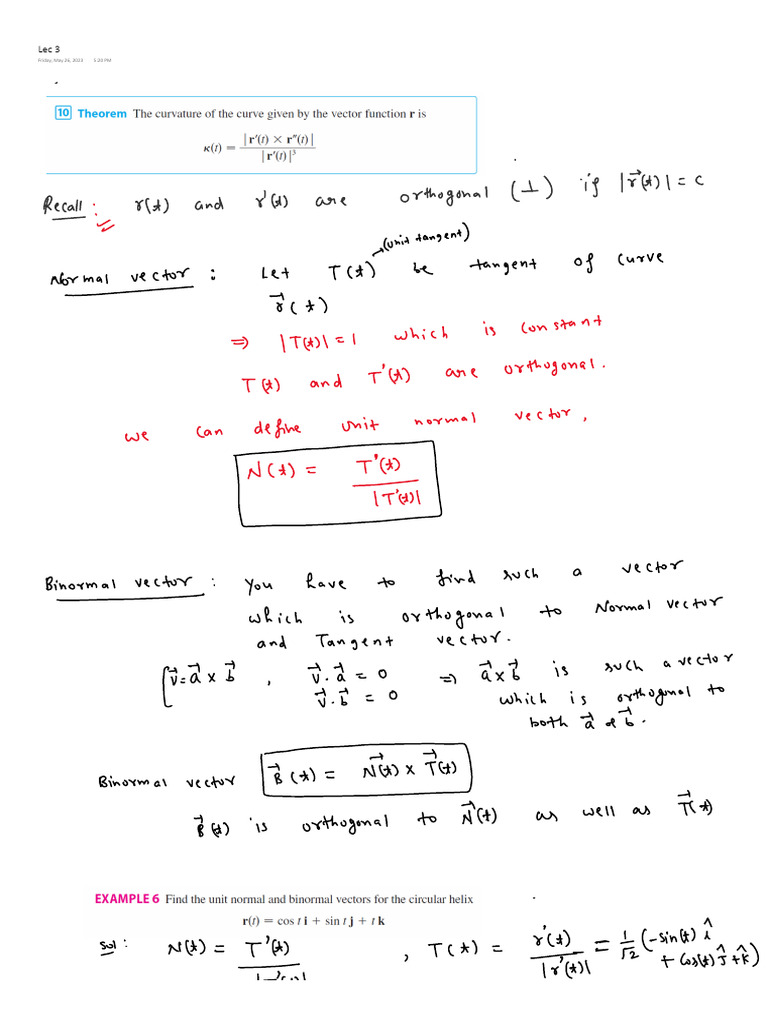 Lec 3
Friday, May 26, 2023 5:20 PM
10 Theorem The curvature of the curve given by the vector function r is
κ(t) = |r′(t) × r″(t)| / |r′(t)|³
Recall : r(t) and r'(t) are orthogonal (⊥) if |r⃗(t)| = c
(unit tangent)
Normal vector : Let T(t) be tangent of curve
r⃗(t)
⇒ |T(t)| = 1 which is constant
T(t) and T'(t) are orthogonal.
we can define unit normal vector,
N(t) = T'(t) / |T'(t)|
Binormal vector : You have to find such a vector
which is orthogonal to Normal vector
and Tangent vector.
[v⃗ = a⃗ × b⃗ , v⃗ . a⃗ = 0 ⇒ a⃗ × b⃗ is such a vector
v⃗ . b⃗ = 0 which is orthogonal to
both a⃗ & b⃗.
Binormal vector B⃗(t) = N⃗(t) × T⃗(t)
B⃗(t) is orthogonal to N⃗(t) as well as T⃗(t)
EXAMPLE 6 Find the unit normal and binormal vectors for the circular helix
r(t) = cos t i + sin t j + t k
Sol : N(t) = T'(t) / , T(t) = r'(t) / |r'(t)| = 1/√2 (-sin(t) î
+ cos(t) ĵ + k̂)